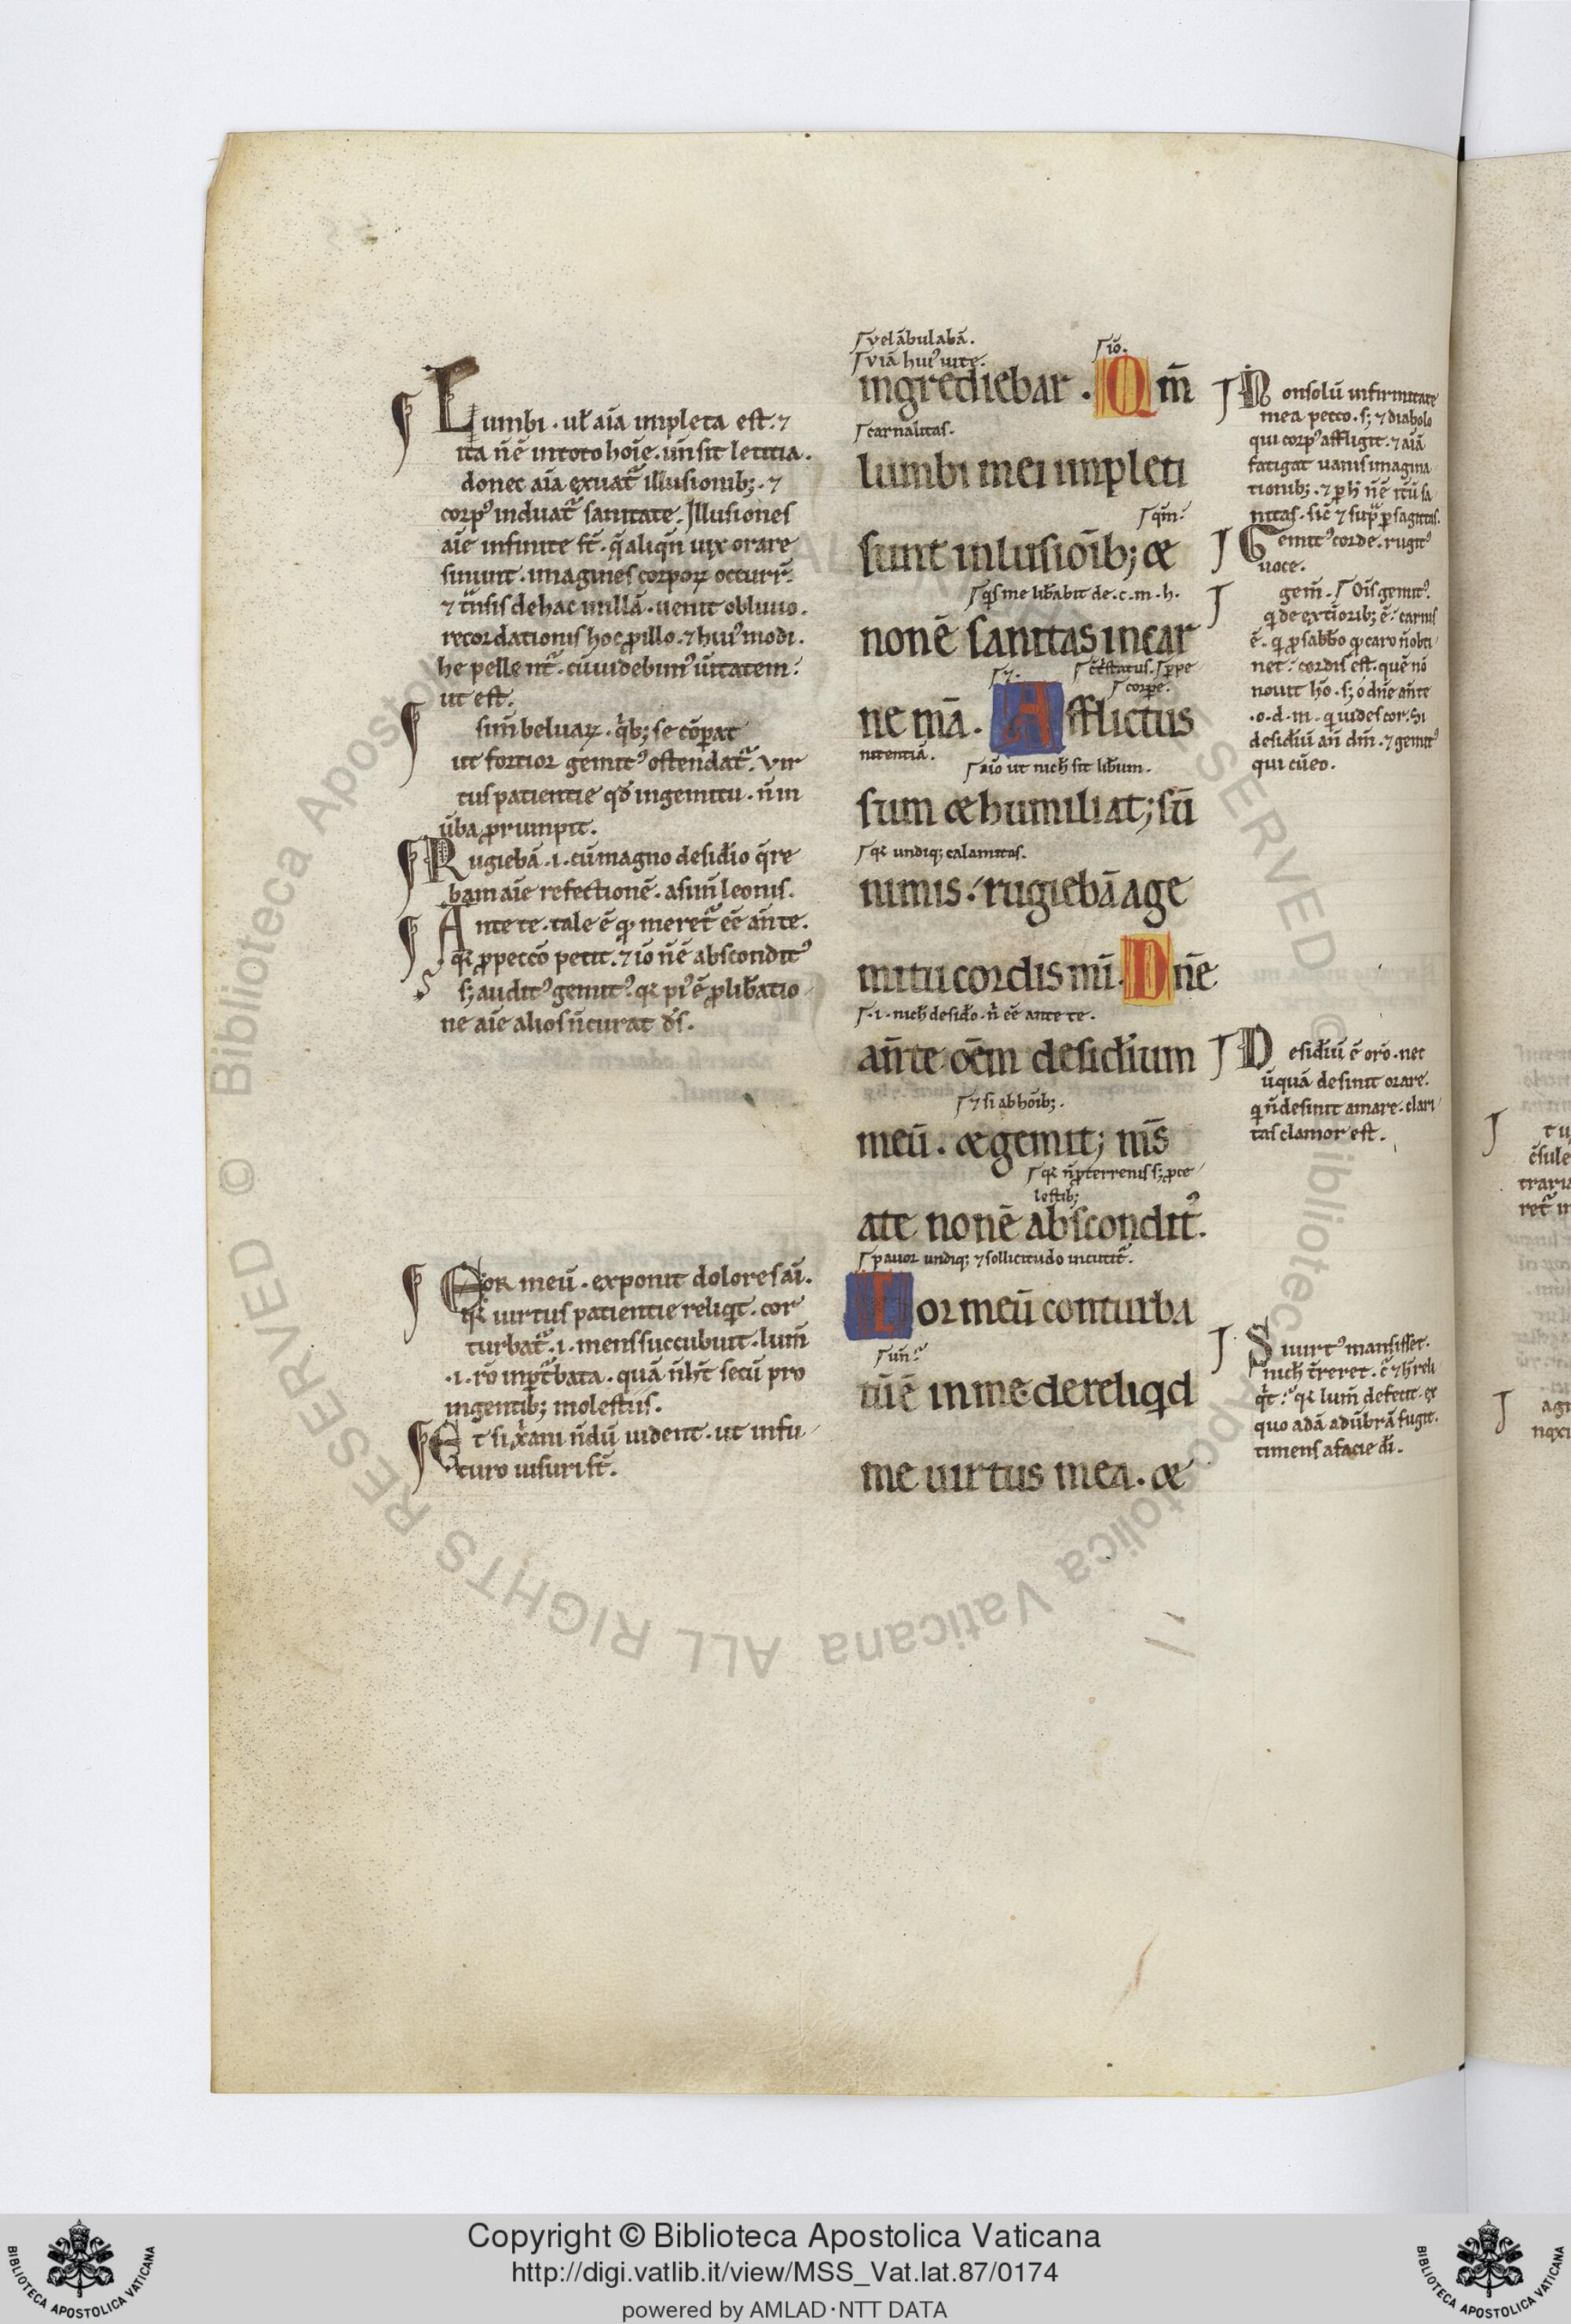 Lumbi · ul̄ aīa impleta est · ⁊
ita n̄ ē in toto hoīe · un̄ sit letitia .
donec aīa exuat᷑ illusionib; · ⁊
corp᷒ induat᷑ sanitate . Illusiones
aīe infinite st̄ · q̄ aliqn̄ uix orare
sinunt · imagines corpoꝝ occurr̄ .
⁊ t̄nsis de hac in illā · uenit obliuio .
recordationis hoc ꝓ illo · ⁊ hui᷒ modi .
he pelle nt᷑ · cū uidebim᷒ ūitatem
ut est .
sim̄ beluaꝝ · qͥb; se cōꝑat
ut fortior gemit᷒ ostendat᷑ . vir
tus patientie qd̄ in gemitu · n̄ in
ūba ꝓrumpit .
Rugiebā · i · cū magno desid̄io q̄re
bam aīe refectionē · a sim̄ leonis .
Ante te · tale ē qͦ meret᷑ eē an̄ te .
qꝛ ꝓ pecco petit · ⁊ iō n̄ ē abscondit᷒
s; audit᷒ gemit᷒ · qꝛ pi᷒ ē ꝓ lib̄atio
ne aīe alios n̄ curat d̄s .
Cor meū · exponit dolores aī .
qꝛ uirtus patientie reliqͥt · cor
turbat᷑ · i · mens succubuit · lum̄
· i · rō inꝑt̄bata · quā n̄ h̄t secū pro
ingentib; molestiis .
Et si xͥani n̄dū uident · ut in fu
turo uisuri st̄ .
vel ābulabā .
viā hui᷒ uite . iō .
ingrediebar . Qm̄
carnalitas .
lumbi mei impleti
qm̄
sunt inlusioīb; æ
qͥs me lib̄abit de · c · m · h .
non ē sanitas in car
⁊ .
corpe .
ne mā . Afflictus
nitentiā . aīo ut nich̄ sit lib̄um .
sum æ humiliat; sū
qꝛ undiq; calamitas .
nimis : rugiebā a ge
mitu cordis mī . Dn̄e
· i · nich̄ desid̄o · n̄ eē ante te .
an̄ te oēm desid̄ium
⁊ si ab hoīb; .
meū . æ gemit; m̄s
qꝛ n̄ ꝓ terrenis s; ꝓ ce
lestib;
a te non ē abscondit᷒ .
pauor undiq; ⁊ sollicitudo incutit᷑ .
Cor meū conturba
un̄
tū ē in me dereliqͥd
me uirtus mea . æ
Non solū infirmitate
mea pecco · s; ⁊ diabolo
qui corp᷒ affligit · ⁊ aīā
fatigat uanis imagina
tionib; · ⁊ ꝑ h̄ n̄ ē
nitas · sic̄ ⁊ sup͛ ꝑ sagittas .
Gemit᷒ corde · rugit᷒
uoce .
gem̄ . Oīs gemit᷒
qͥ de exͭiorib; ē : carnis
ē · qͥ ꝓ sabb̄o qͦ caro n̄ obti
net : cordis est · quē nō
nouit h̄o · s; ō dn̄e an̄ te
· o · d · m · qͥ uides cor · Si
desid̄iū an̄ dm̄ · ⁊ gemit᷒
qui cū eo .
Desid̄iū ē or̄o · nec
ūquā desinit orare .
qͥ n̄ desinit amare · clari
tas clamor est .
Si uirt᷒ mansisset .
nich̄ t̄reret .
qͥt : qꝛ lum̄ defecit · ex
quo adā ad ūbrā fugit .
timens a facie dī .
Copyright © Biblioteca Apostolica Vaticana
http://digi.vatlib.it/view/MSS_Vat.lat.87/0174
powered by AMLAD·NTT DATA
© Biblioteca Apostolica Vaticana ALL RIGHTS RESERVED
BIBLIOTECA APOSTOLICA VATICANA
BIBLIOTECA APOSTOLICA VATICANA